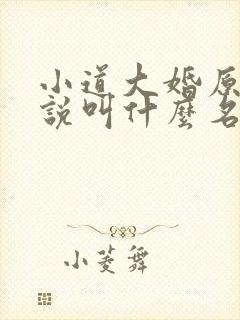 小道大婚原
說叫什麼名
小菱舞